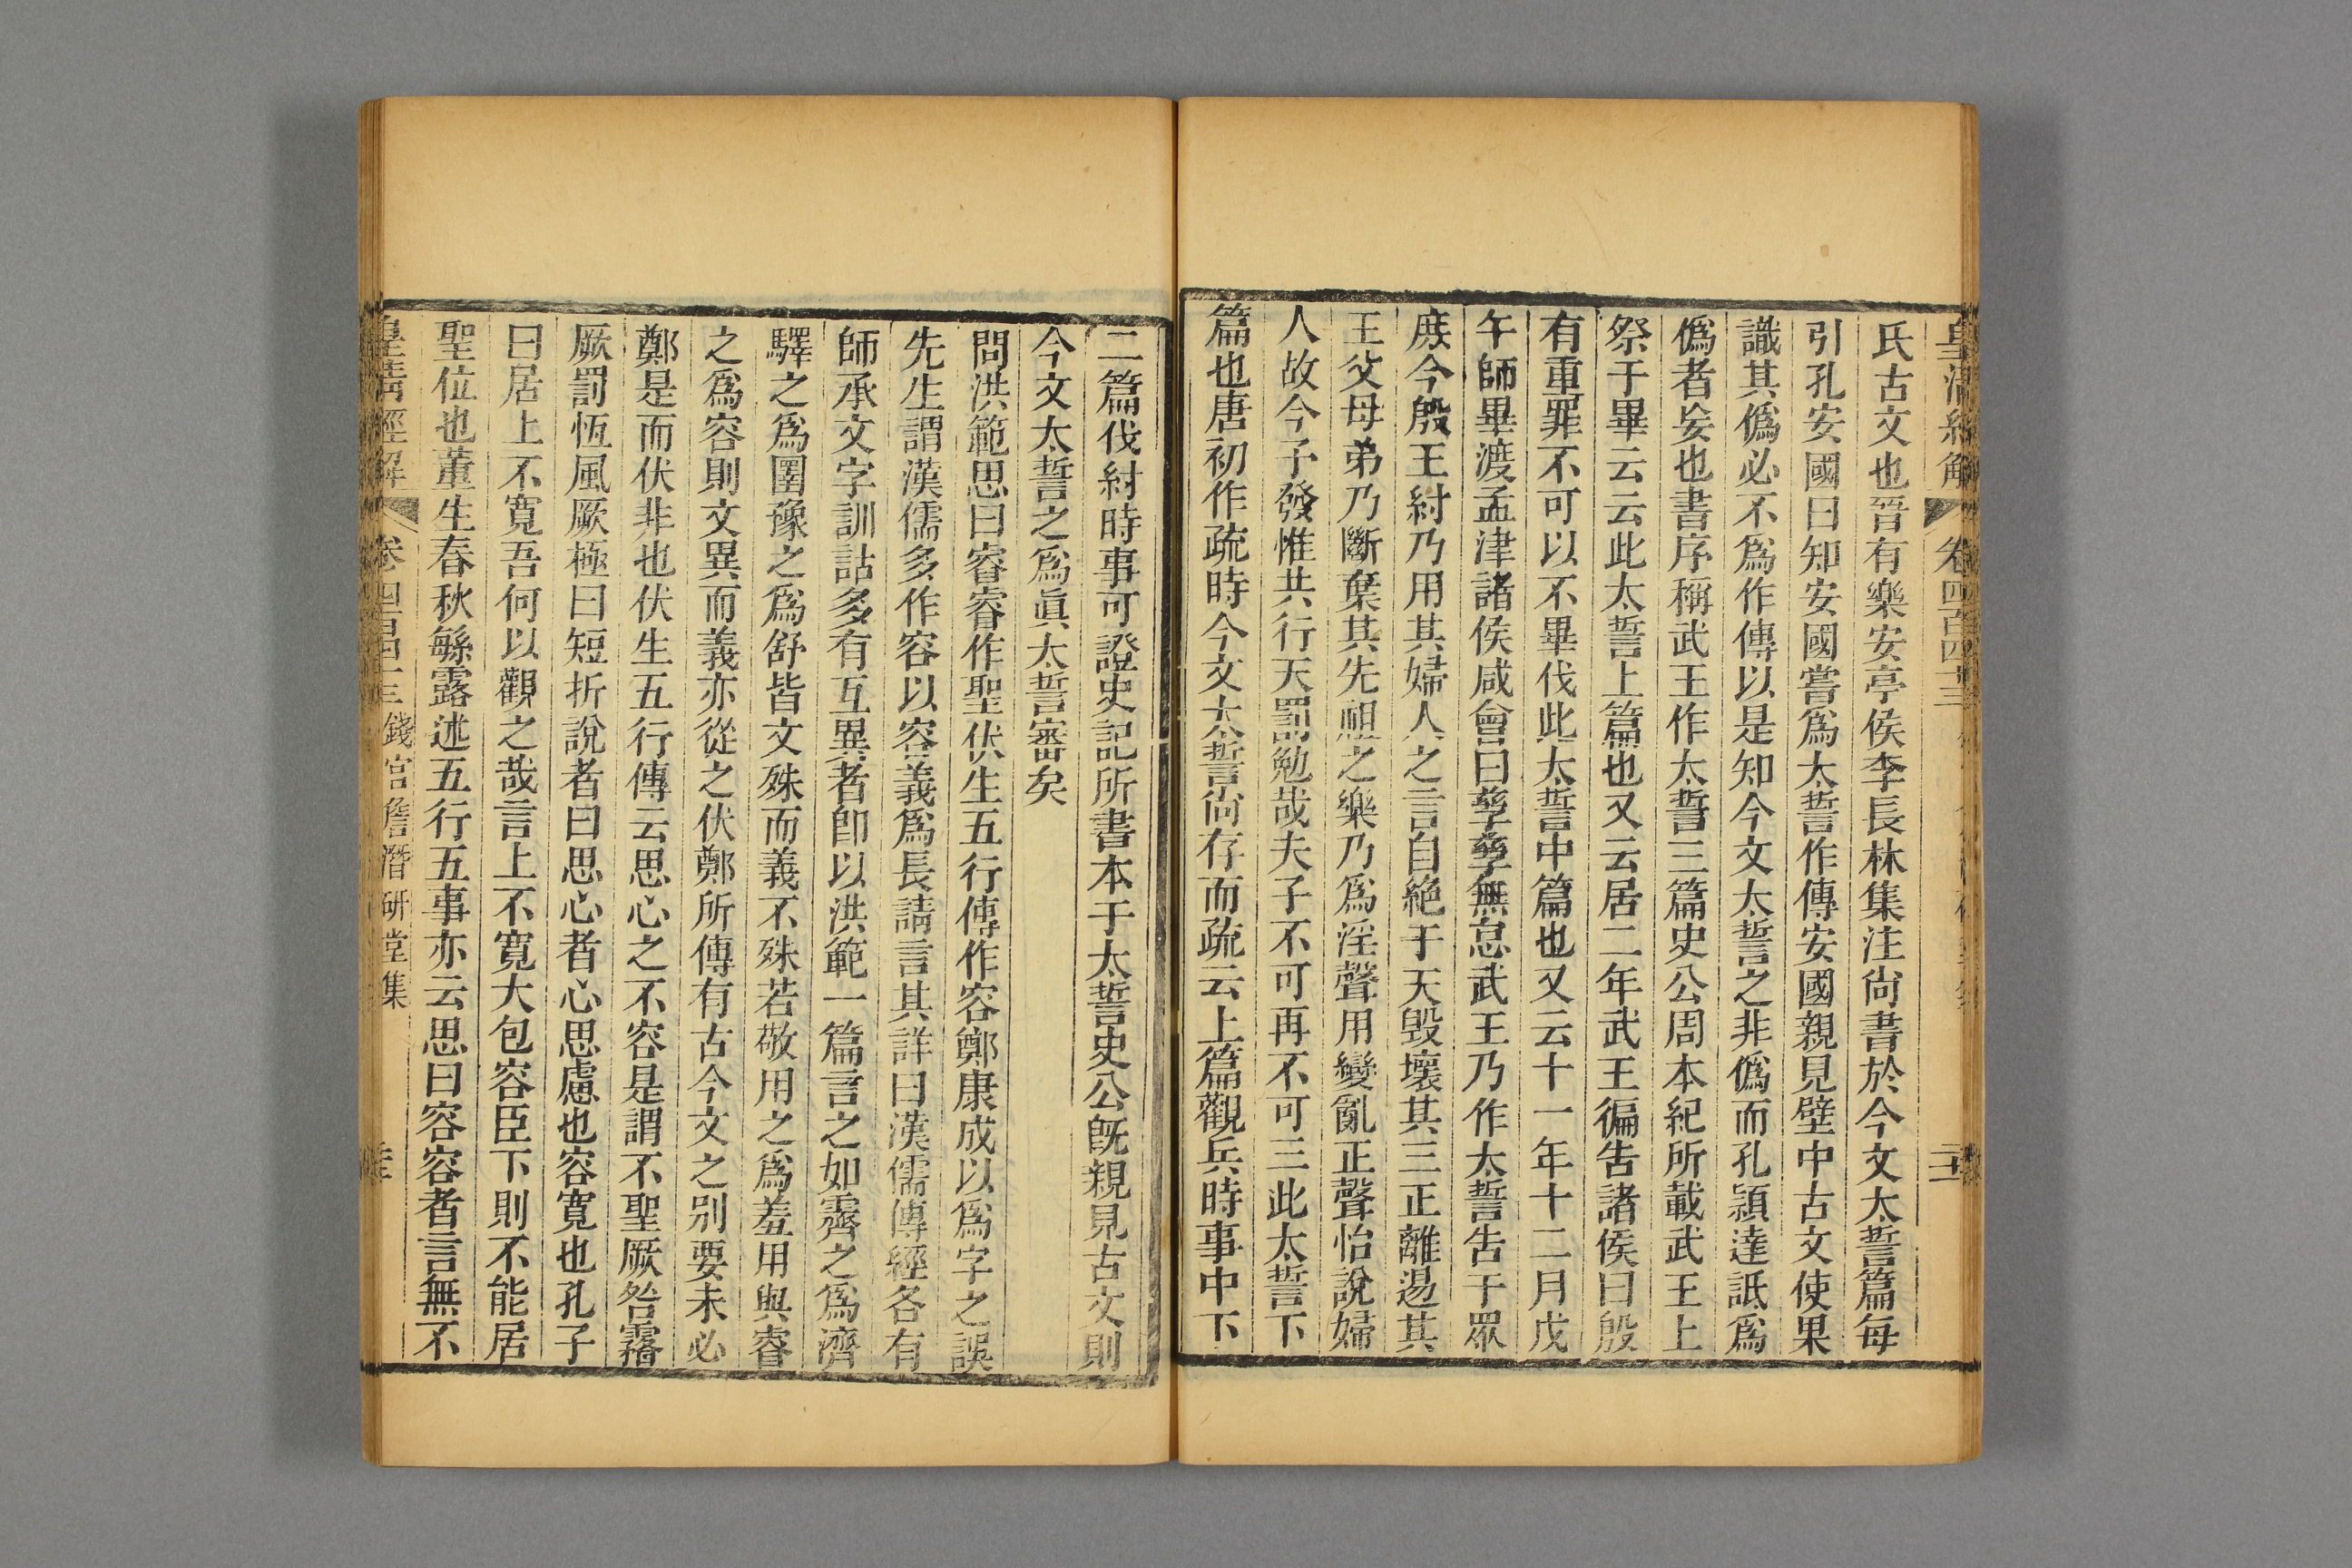 皇清經解 卷四百四十三
氏古文也晉有樂安亭侯李長林集注尙書於今文太誓篇每
引孔安國曰知安國嘗爲太誓作傳安國親見壁中古文使果
識其僞必不爲作傳以是知今文太誓之非僞而孔穎達詆爲
僞者妄也書序稱武王作太誓三篇史公周本紀所載武王上
祭于畢云云此太誓上篇也又云居二年武王徧告諸侯曰殷
有重罪不可以不畢伐此太誓中篇也又云十一年十二月戊
午師畢渡孟津諸侯咸會曰孳孳無怠武王乃作太誓告于眾
庶今殷王紂乃用其婦人之言自絕于天毀壞其三正離逷其
王父母弟乃斷棄其先祖之樂乃爲淫聲用變亂正聲怡說婦
人故今予發惟共行天罰勉哉夫子不可再不可三此太誓下
篇也唐初作疏時今文太誓尙存而疏云上篇觀兵時事中下
二篇伐紂時事可證史記所書本于太誓史公旣親見古文則
今文太誓之爲眞太誓審矣
問洪範思曰睿睿作聖伏生五行傳作容鄭康成以爲字之誤
先生謂漢儒多作容以容義爲長請言其詳曰漢儒傳經各有
師承文字訓詁多有互異者卽以洪範一篇言之如霽之爲濟
驛之爲圛豫之爲舒皆文殊而義不殊若敬用之爲羞用與睿
之爲容則文異而義亦從之伏鄭所傳有古今文之別要未必
鄭是而伏非也伏生五行傳云思心之不容是謂不聖厥咎霿
厥罰恆風厥極曰短折說者曰思心者心思慮也容寬也孔子
曰居上不寬吾何以觀之哉言上不寬大包容臣下則不能居
聖位也董生春秋繇露述五行五事亦云思曰容容者言無不
皇淸經解 卷四百四十三 錢宮詹潛研堂集